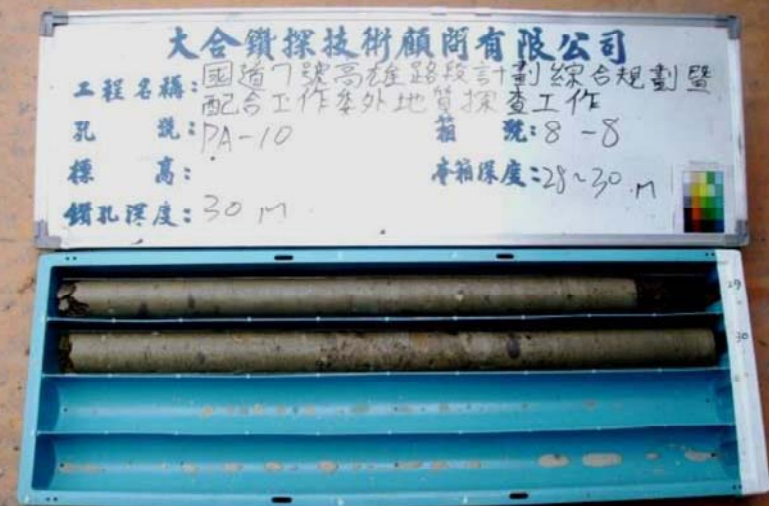 大合鑽探技術顧問有限公司
工程名稱：國道7號高雄路段計劃綜合規劃暨
配合工作委外地質探查工作
孔 號：PA-10 箱 號：8-8
標 高： 本箱深度：28~30 M
鑽孔深度：30 M
29
30